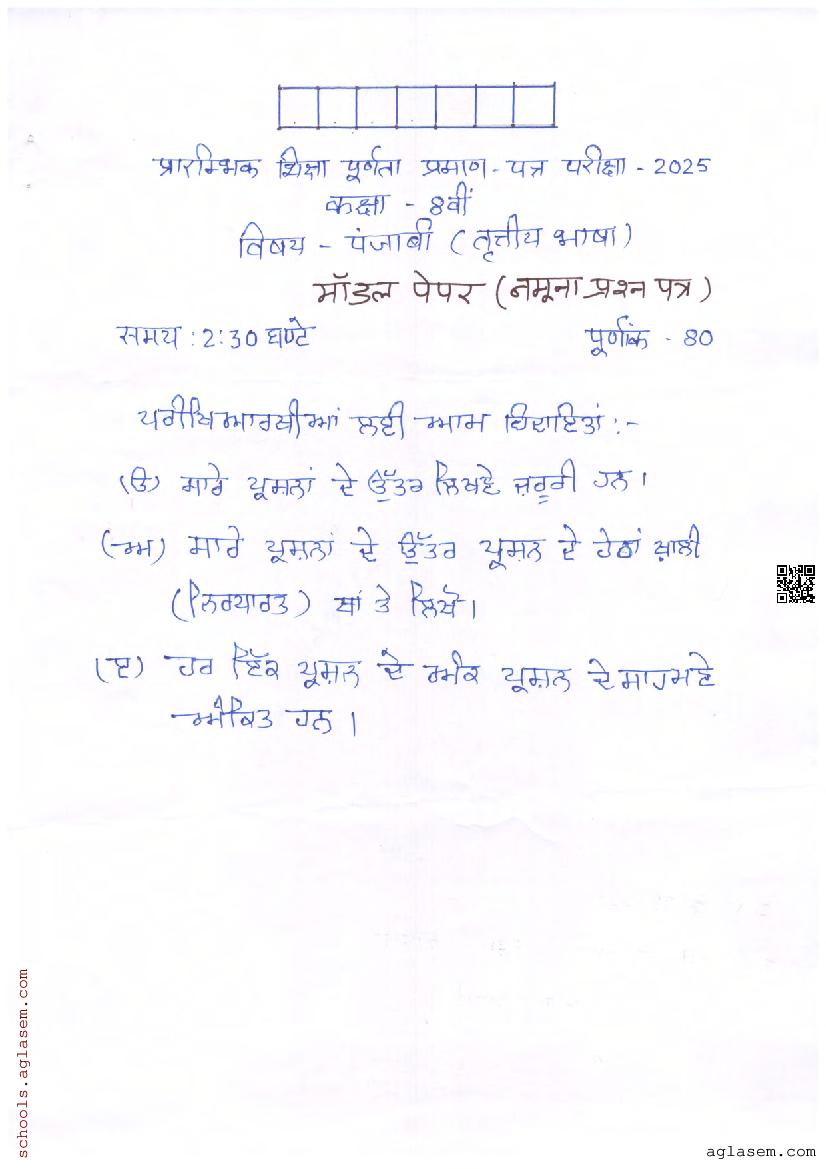 प्रारम्भिक शिक्षा पूर्णता प्रमाण-पत्र परीक्षा - 2025
कक्षा - 8वीं
विषय - पंजाबी (तृत्तीय भाषा)
मॉडल पेपर (नमूना प्रश्न पत्र)
समय : 2:30 घण्टे पूर्णांक - 80
ਪਰੀਖਿਆਰਥੀਆਂ ਲਈ ਆਮ ਹਿਦਾਇਤਾਂ :-
(ੳ) ਸਾਰੇ ਪ੍ਰਸ਼ਨਾਂ ਦੇ ਉੱਤਰ ਲਿਖਣੇ ਜ਼ਰੂਰੀ ਹਨ।
(ਅ) ਸਾਰੇ ਪ੍ਰਸ਼ਨਾਂ ਦੇ ਉੱਤਰ ਪ੍ਰਸ਼ਨ ਦੇ ਹੇਠਾਂ ਖ਼ਾਲੀ
(ਨਿਰਧਾਰਤ) ਥਾਂ ਤੇ ਲਿਖੋ।
(ੲ) ਹਰ ਇੱਕ ਪ੍ਰਸ਼ਨ ਦੇ ਅੰਕ ਪ੍ਰਸ਼ਨ ਦੇ ਸਾਹਮਣੇ
ਅੰਕਿਤ ਹਨ।
schools.aglasem.com
aglasem.com